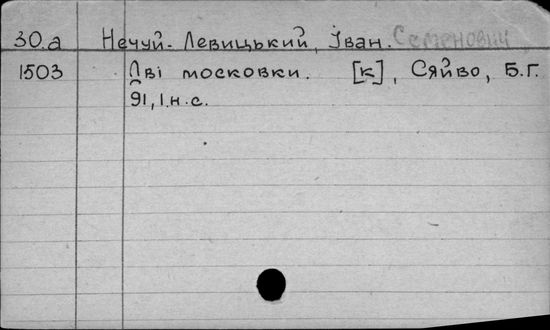 30.а Нечуй-Левицький, Іван. Семенович
1503 Дві московки. [К], Сяйво, Б.Г.
91, 1.н.с.